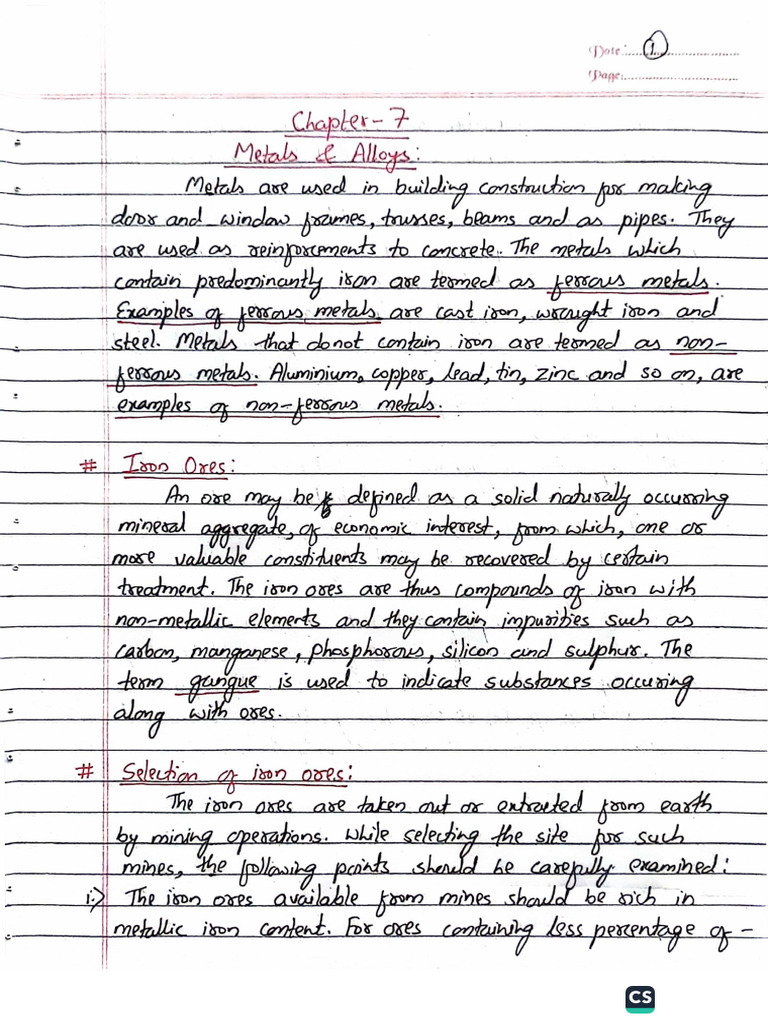 Date: 1
Page:
Chapter-7
Metals & Alloys:
Metals are used in building construction for making
door and window frames, trusses, beams and as pipes. They
are used as reinforcements to concrete. The metals which
contain predominantly iron are termed as ferrous metals.
Examples of ferrous metals are cast iron, wrought iron and
steel. Metals that donot contain iron are termed as non-
ferrous metals. Aluminium, copper, lead, tin, zinc and so on, are
examples of non-ferrous metals.
# Iron Ores:
An ore may be defined as a solid naturally occurring
mineral aggregate, of economic interest, from which, one or
more valuable constituents may be recovered by certain
treatment. The iron ores are thus compounds of iron with
non-metallic elements and they contain impurities such as
carbon, manganese, phosphorous, silicon and sulphur. The
term gangue is used to indicate substances occuring
along with ores.
# Selection of iron ores:
The iron ores are taken out or extracted from earth
by mining operations. While selecting the site for such
mines, the following points should be carefully examined:
1.) The iron ores available from mines should be rich in
metallic iron content. For ores containing less percentage of -
CS